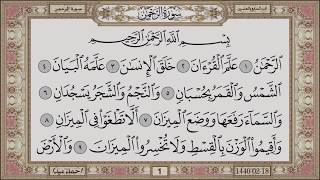 سورة الرحمن
سُورَةُ الرَّحْمَٰن
بِسْمِ اللَّهِ الرَّحْمَٰنِ الرَّحِيمِ
الرَّحْمَٰنُ ۝١ عَلَّمَ الْقُرْءَانَ ۝٢ خَلَقَ الْإِنسَٰنَ ۝٣ عَلَّمَهُ الْبَيَانَ ۝٤
الشَّمْسُ وَالْقَمَرُ بِحُسْبَانٍ ۝٥ وَالنَّجْمُ وَالشَّجَرُ يَسْجُدَانِ ۝٦
وَالسَّمَاءَ رَفَعَهَا وَوَضَعَ الْمِيزَانَ ۝٧ أَلَّا تَطْغَوْا فِي الْمِيزَانِ ۝٨
وَأَقِيمُوا الْوَزْنَ بِالْقِسْطِ وَلَا تُخْسِرُوا الْمِيزَانَ ۝٩ وَالْأَرْضَ
1440/02/18
1